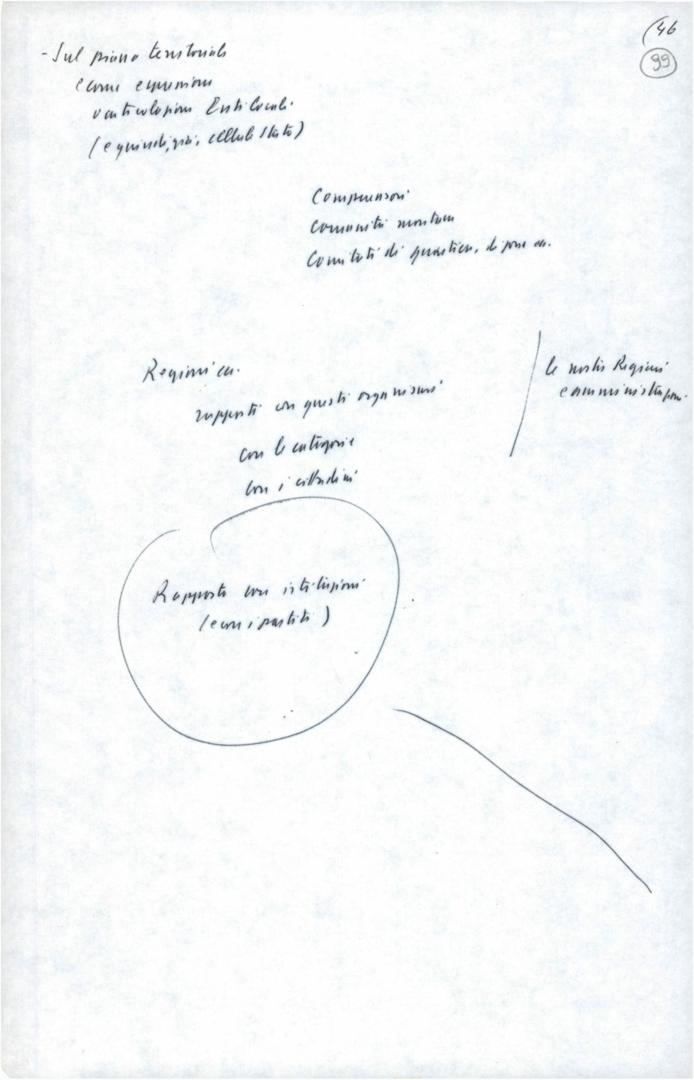 46
99
- Sul piano territoriale
e come espressione
o articolazioni Enti locali
(e quindi, poi, cellule Stato)
Comprensori
comunità montane
Comitati di quartiere, di
Regioni ecc.
rapporti con questi organismi
con le categorie
con i cittadini
le nostre Regioni
e amministrazioni
Rapporti con istituzioni
(e con i partiti)